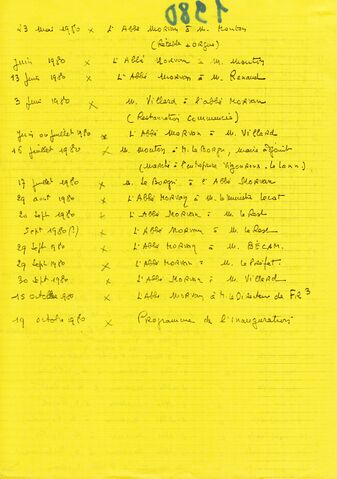 1980
23 mai 1980 x L'Abbé MORVAN à M. Mouton
(Retable + orgue)
Juin 1980 x L'Abbé MORVAN à M. Mouton
13 Juin 1980 x L'Abbé MORVAN à M. Renaud
3 Juin 1980 x M. Villard à l'abbé MORVAN
(Restauration commencée)
Juin ou juillet 1980 x L'Abbé MORVAN à M. Villard
15 juillet 1980 x M. Mouton à M. le Borgn, maire adjoint
(Marché à l'entreprise le Lann.)
17 juillet 1980 x M. le Borgn à l'Abbé MORVAN
29 août 1980 x L'Abbé MORVAN à M. le
20 Sept 1980 x L'Abbé MORVAN à M. le Rest
Sept 1980 (?) x L'Abbé MORVAN à M. le Rest
29 Sept 1980 x L'Abbé MORVAN à M. BÉCAM.
29 Sept 1980 x L'Abbé MORVAN à M. le Préfet
30 Sept 1980 x L'Abbé MORVAN à M. Villard
15 octobre 1980 x L'Abbé MORVAN à M. le Directeur de FR3
19 octobre 1980 x Programme de l'inauguration